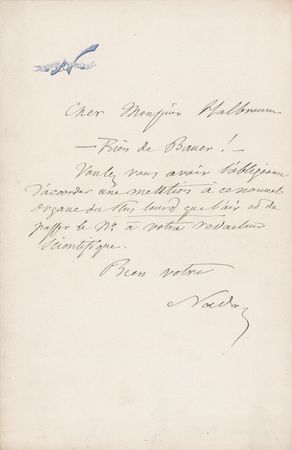 Cher Monsieur
— Prière de Bauer ! —
Voulez vous avoir l'obligeance
d'accorder une mention à ce nouvel
organe du Plus lourd que l'air et de
passer le No à votre rédacteur
scientifique.
Bien votre
Nadar